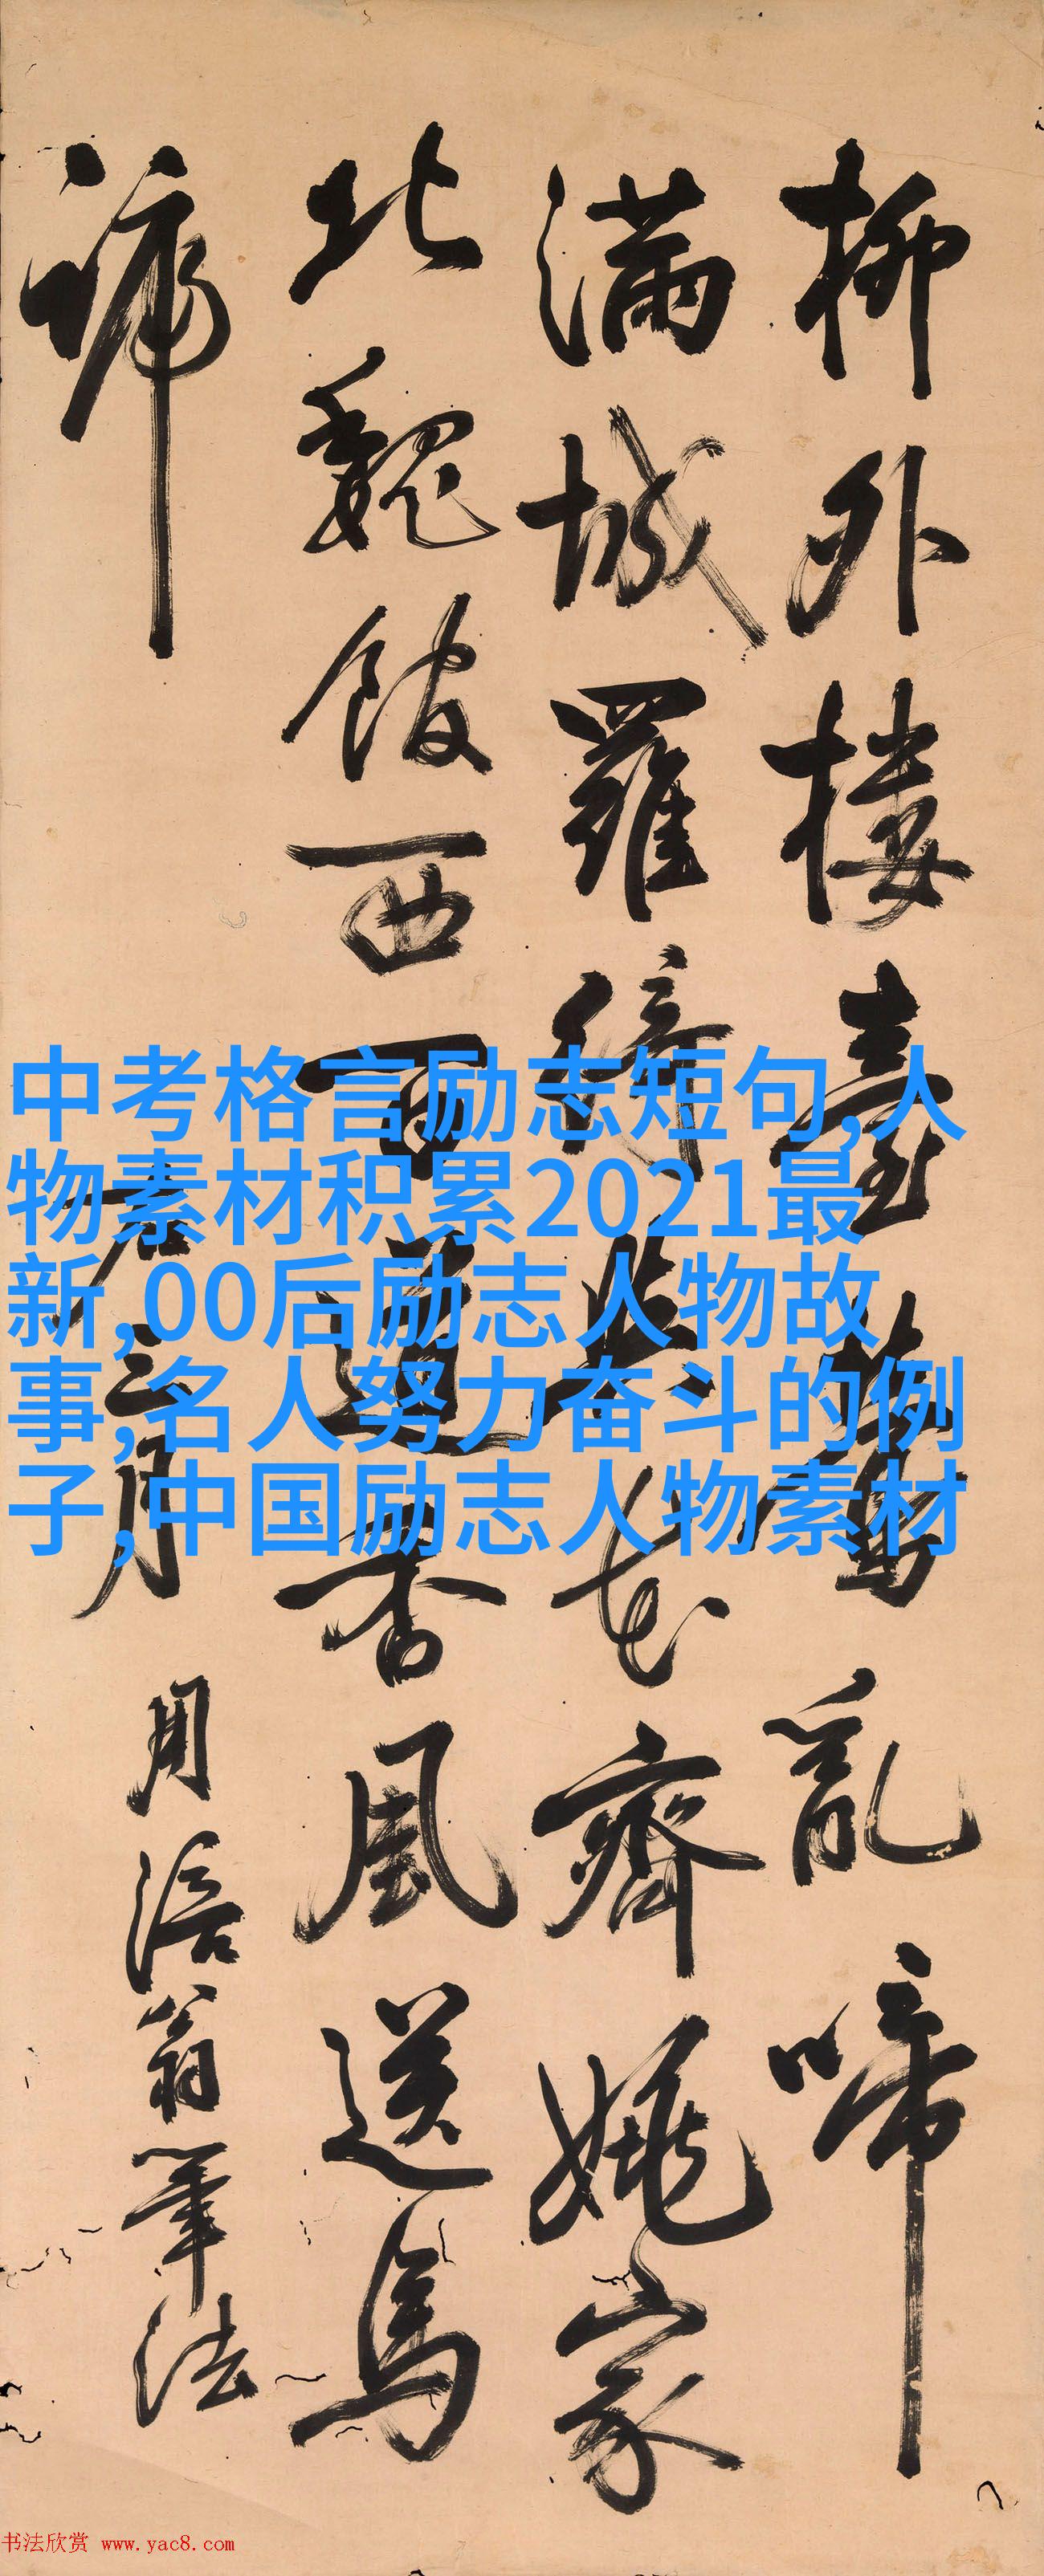 柳外楼臺鶯亂啼
满城羅綺
花齊姚家
北魏館西
西道香風送馬
蹄
三月
用涪翁筆法
中考格言励志短句,人
物素材积累2021最
新,00后励志人物故
事,名人努力奋斗的例
子,中国励志人物素材
书法欣赏 www.yac8.com